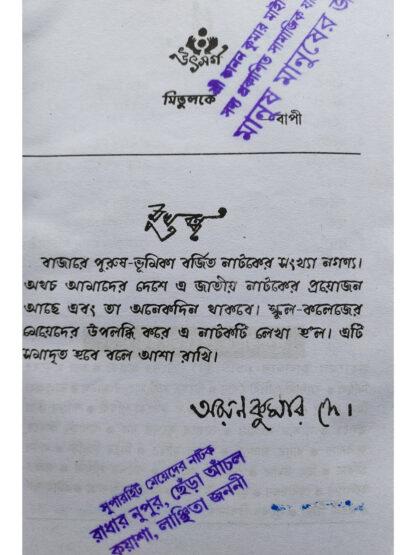 উৎসর্গ
মিতুলকে
বাপী
শ্রী কানন কুমার মাইতি
সদ্য প্রকাশিত সামাজিক যা
মানুষ মানুষের জ
মুখবন্ধ
বাজারে পুরুষ-ভূমিকা বর্জিত নাটকের সংখ্যা নগণ্য।
অথচ আমাদের দেশে এ জাতীয় নাটকের প্রয়োজন
আছে এবং তা অনেকদিন থাকবে। স্কুল-কলেজের
মেয়েদের উপলব্ধি করে এ নাটকটি লেখা হ'ল। এটি
সমাদৃত হবে বলে আশা রাখি।
অয়নকুমার দে।
সুপারহিট মেয়েদের নাটক
রাধার নুপুর, ছেঁড়া আঁচল
কুয়াশা, লাঞ্ছিতা জননী